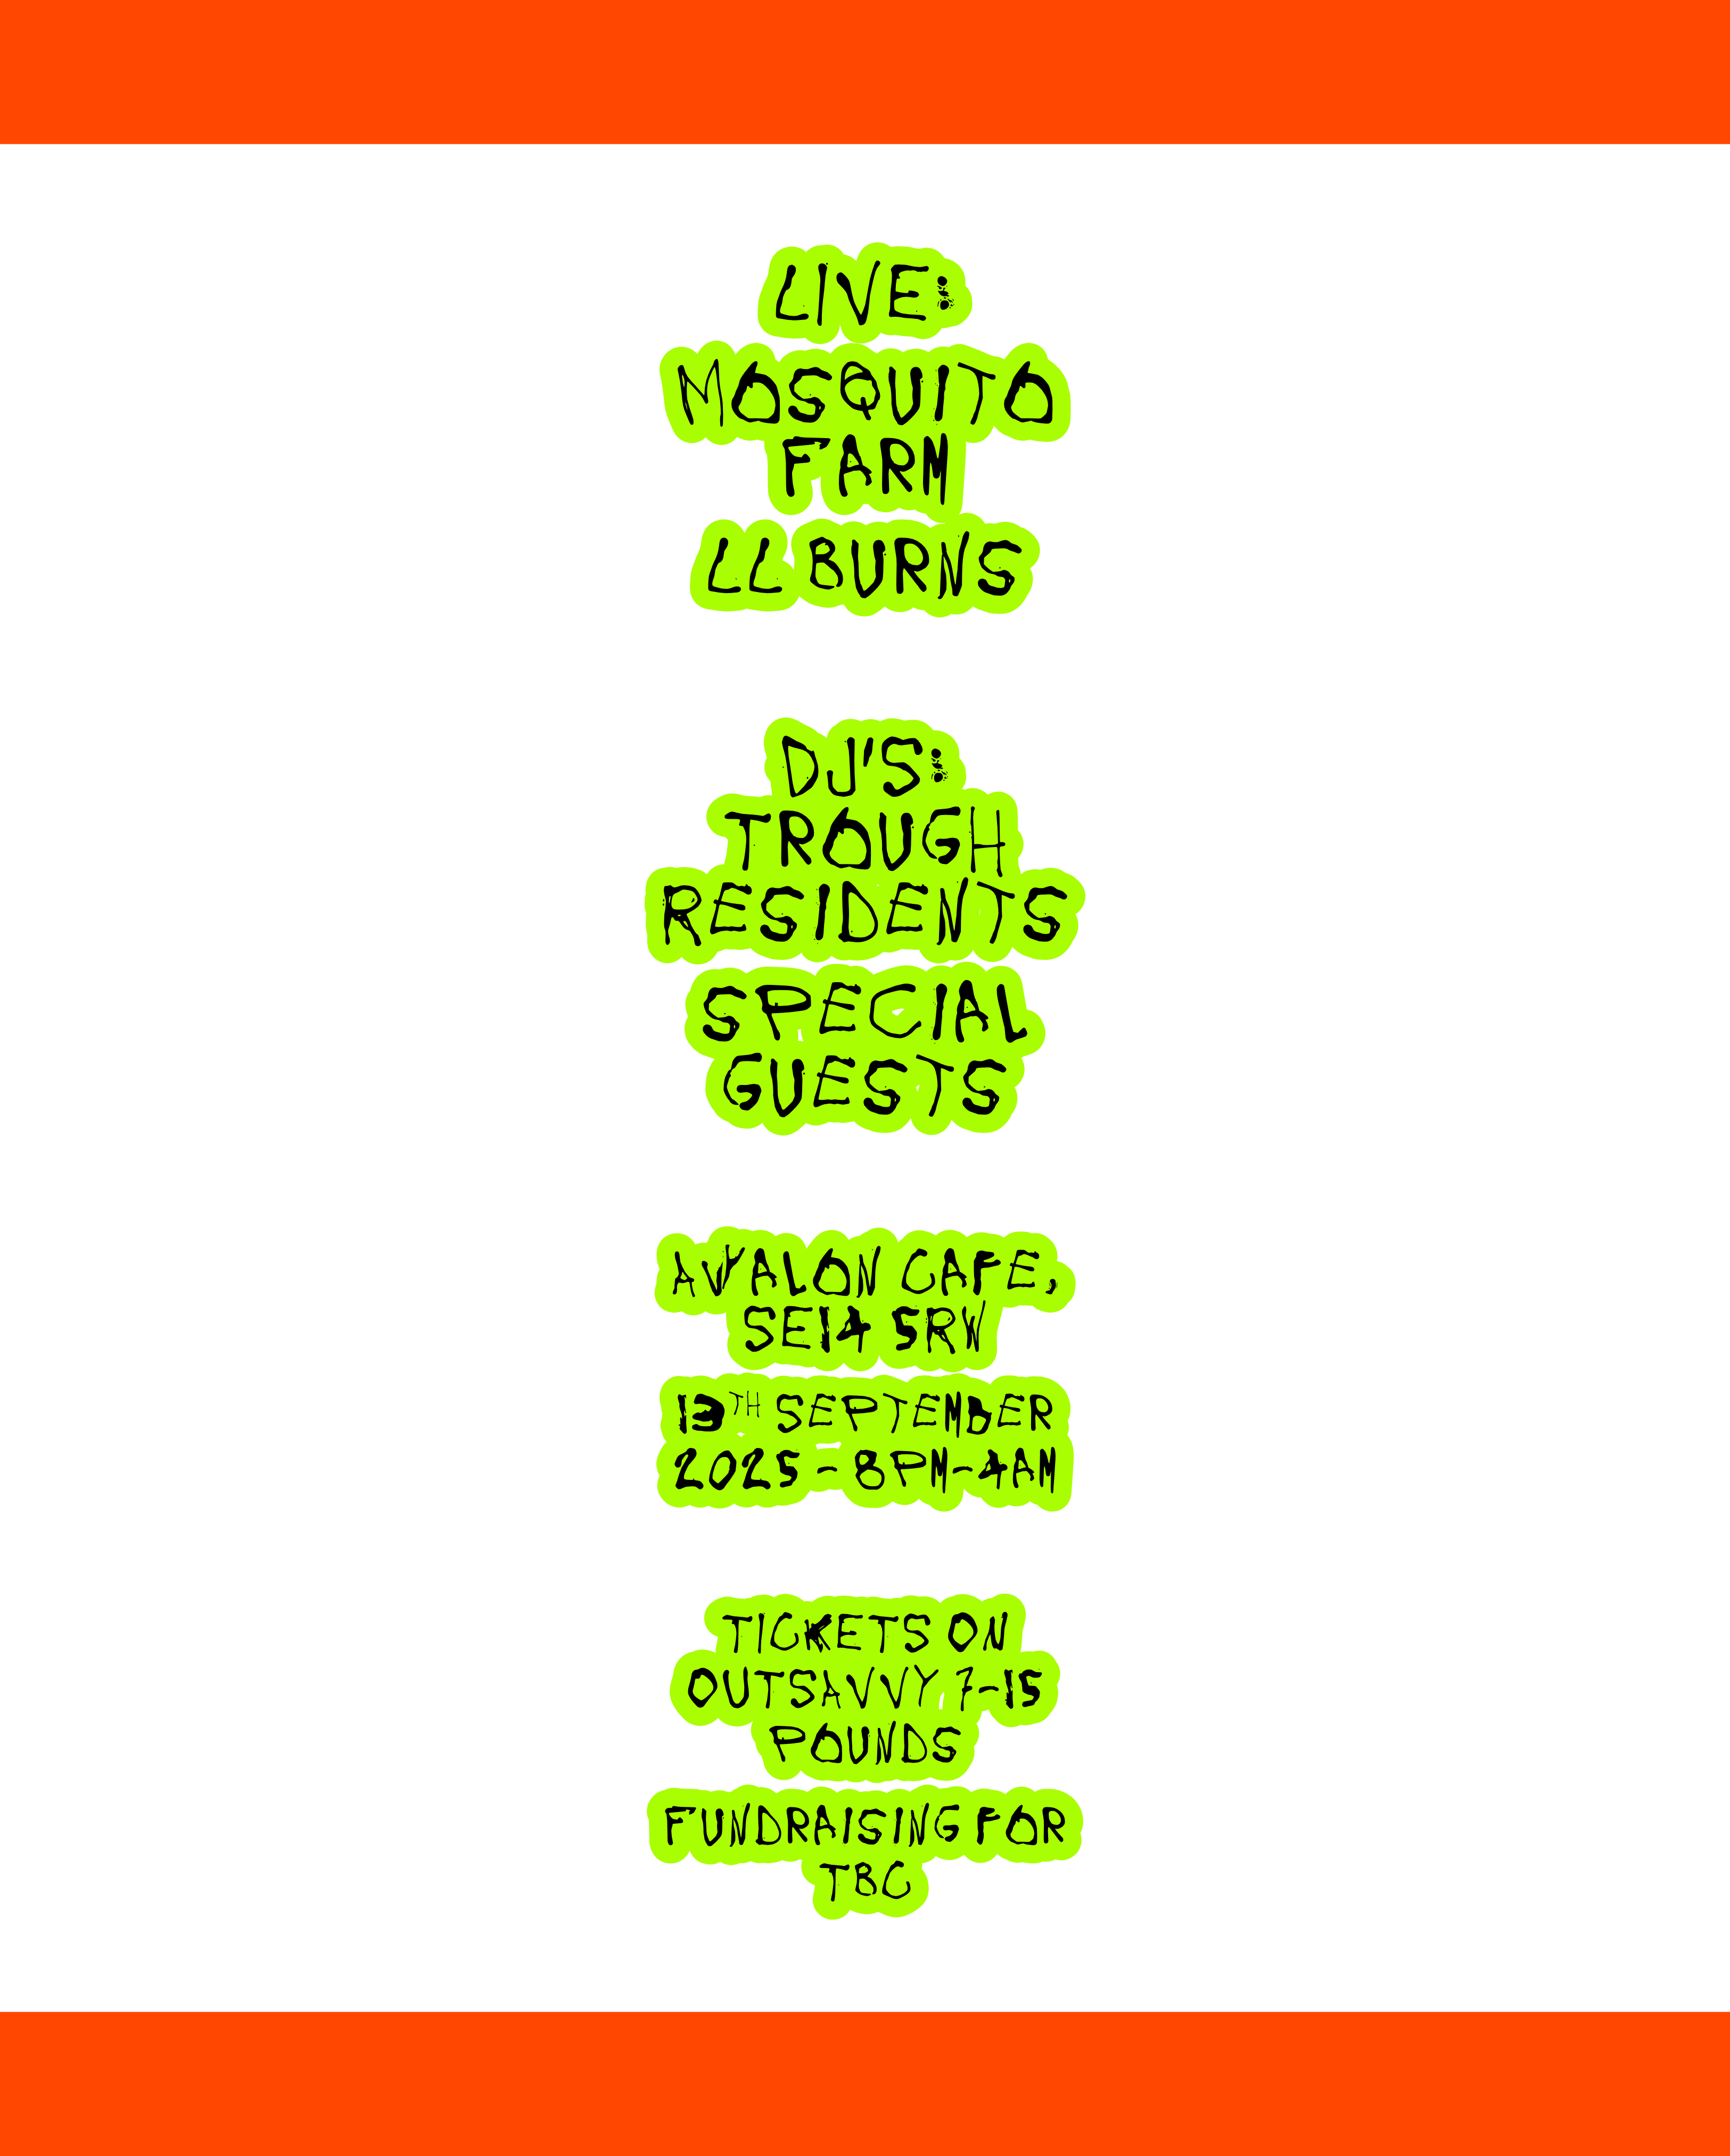 LIVE:
MOSQUITO
FARM
LL BURNS
DJ'S:
TROUGH
RESIDENTS
SPECIAL
GUESTS
AVALON CAFE,
SE14 5RW
13TH SEPTEMBER
2025 - 8PM-4AM
TICKETS ON
OUTSAVVY 7-15
POUNDS
FUNDRAISING FOR
TBC